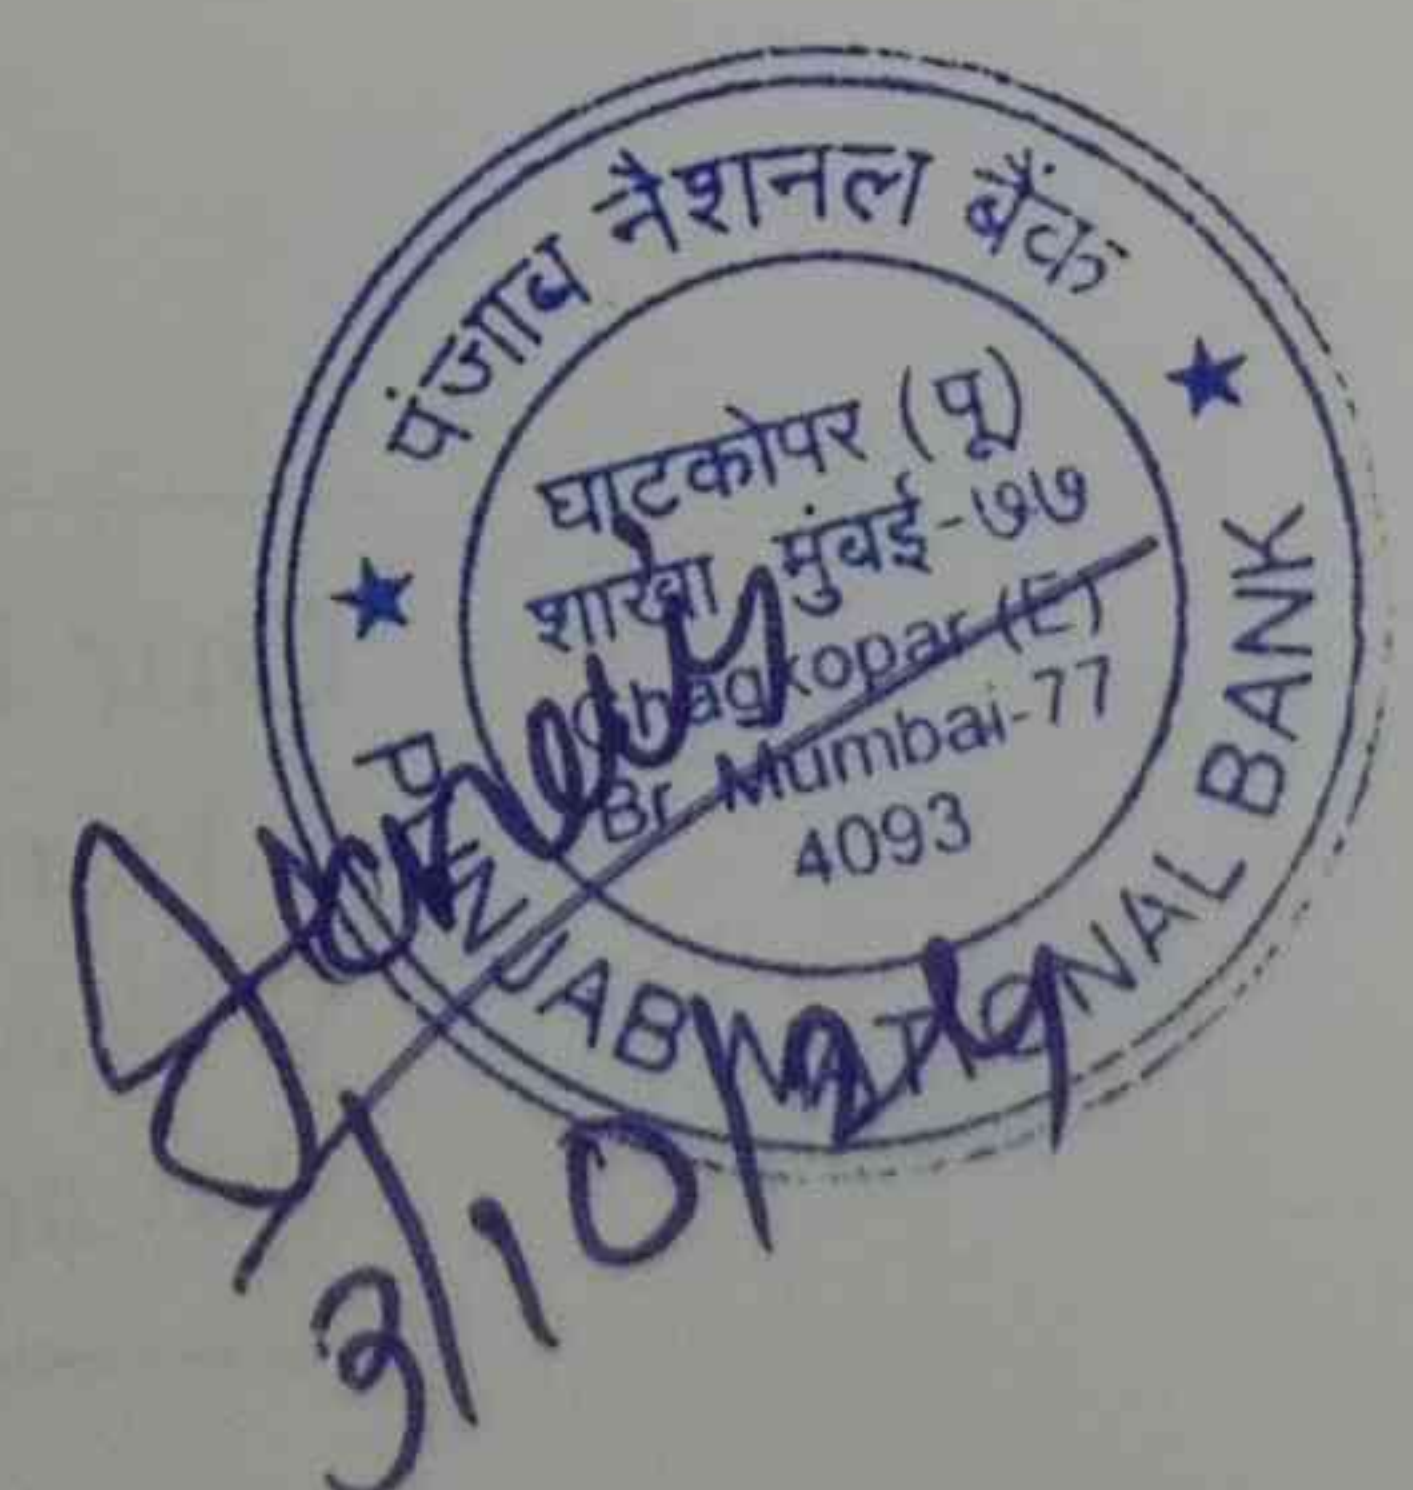 पंजाब नैशनल बैंक
घाटकोपर (पू)
शाखा मुंबई-७७
Ghagkopar (E)
Br Mumbai-77
4093
PUNJAB NATIONAL BANK
3/10/2019